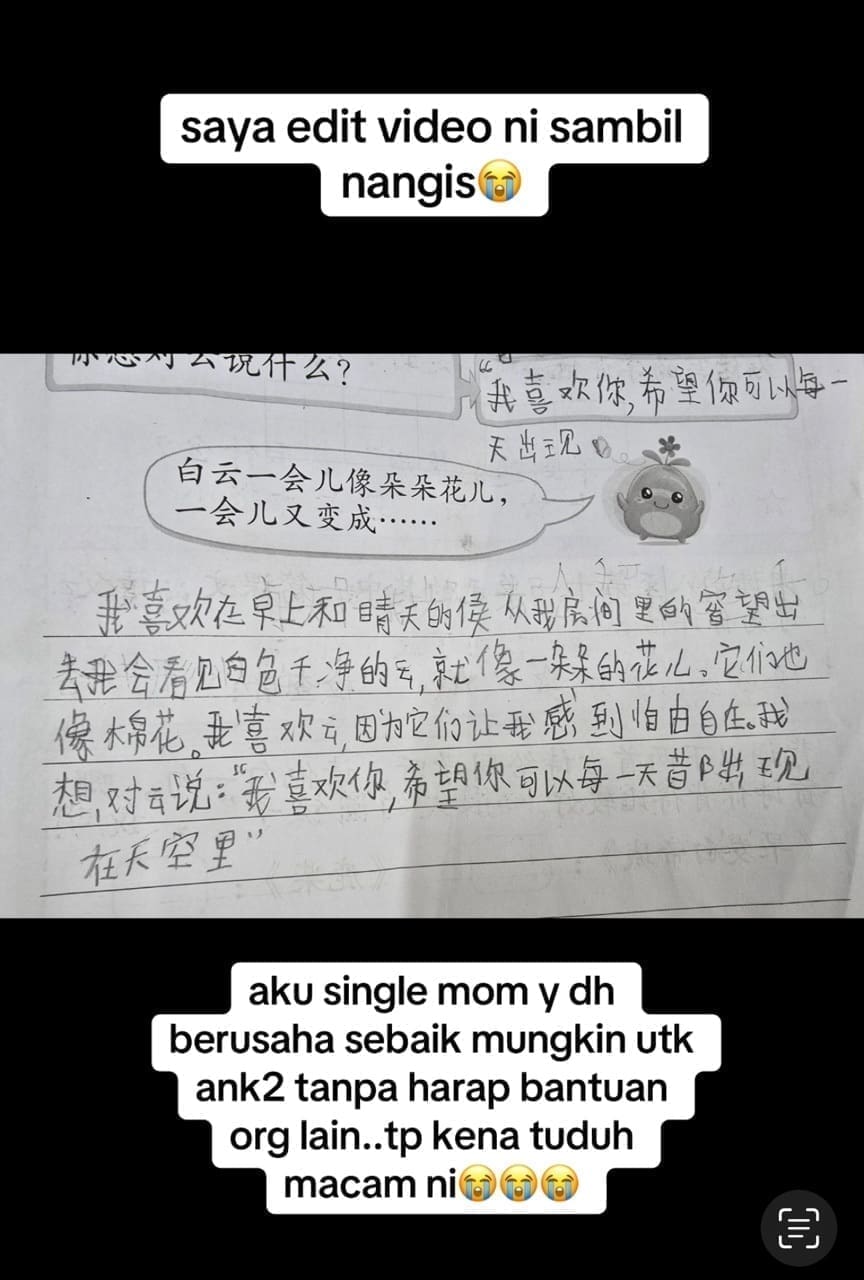 saya edit video ni sambil
nangis😭
你想对云说什么?
“我喜欢你,希望你可以每一
天出现
白云一会儿像朵朵花儿,
一会儿又变成……
我喜欢在早上和晴天的候从我房间里的窗望出
去我会看见白色干净的云,就像一朵朵的花儿。它们也
像棉花。我喜欢云,因为它们让我感到自由自在。我
想,对云说:“我喜欢你,希望你可以每一天昔阝出现
在天空里”
aku single mom y dh
berusaha sebaik mungkin utk
ank2 tanpa harap bantuan
org lain..tp kena tuduh
macam ni😭😭😭